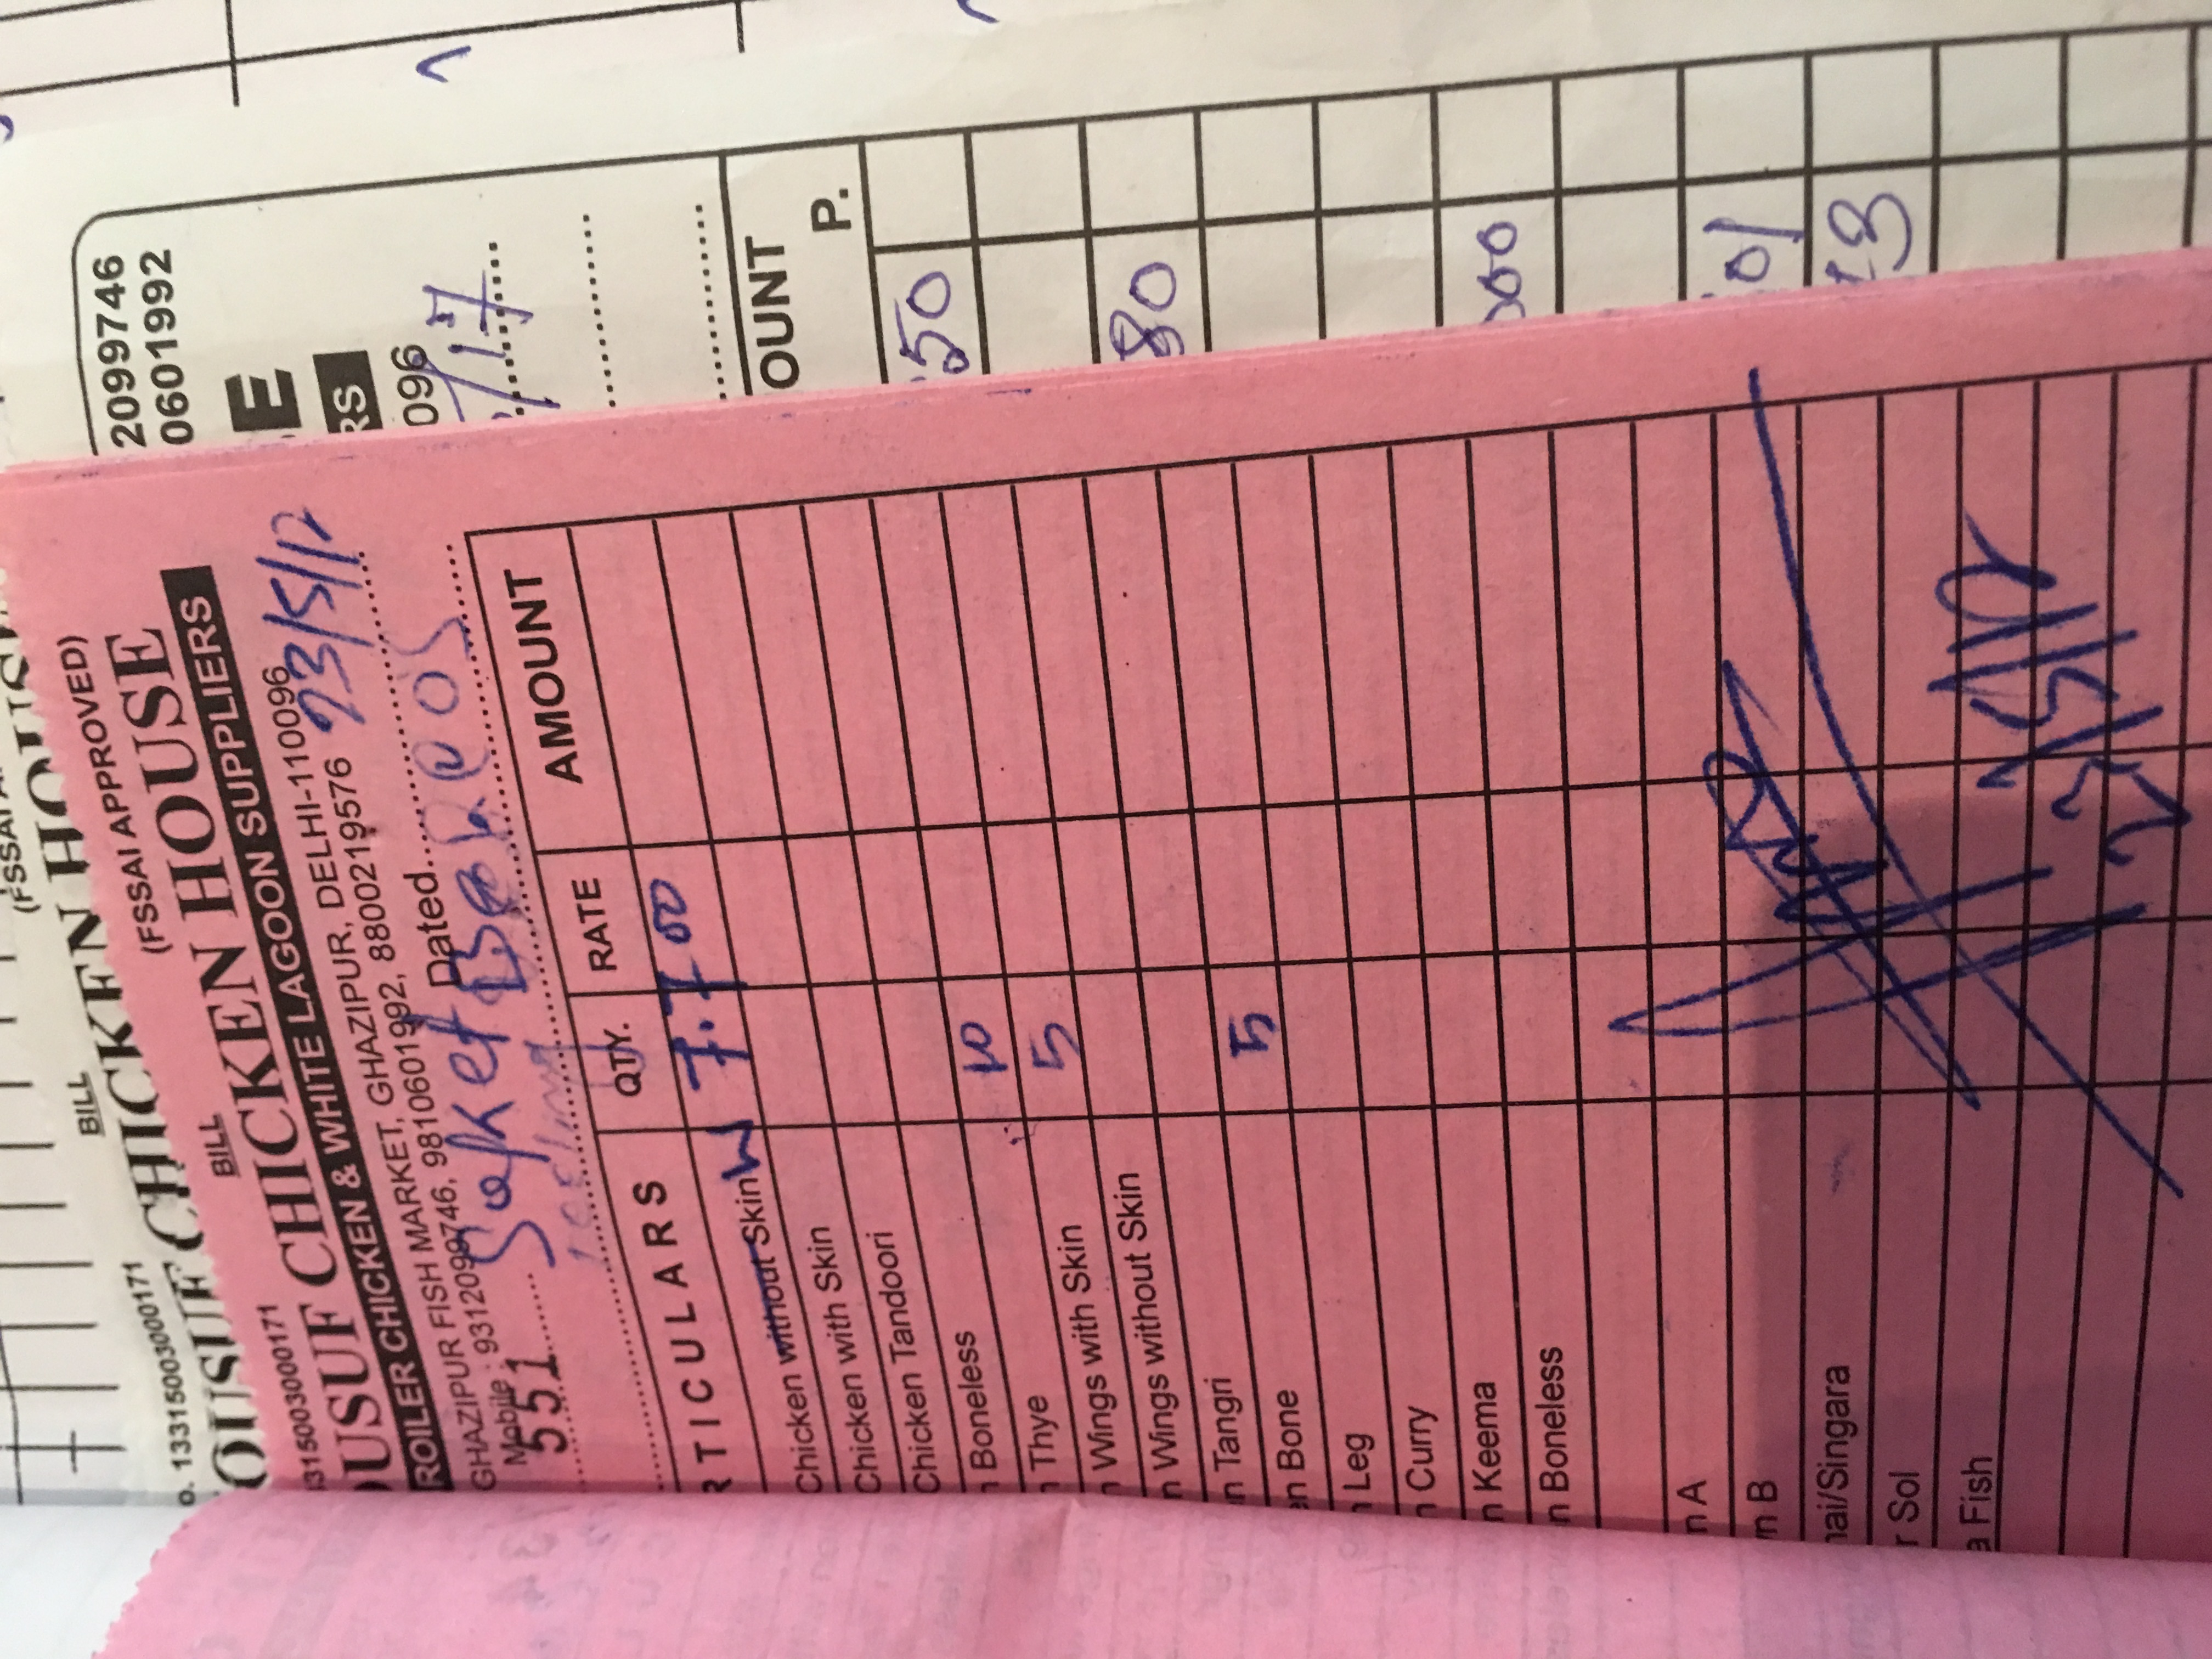 (FSSAI
BILL
o. 13315003000171
OUSUF CHICKEN HOUSE
(FSSAI APPROVED)
BILL
3315003000171
OUSUF CHICKEN HOUSE
ROILER CHICKEN & WHITE LAGOON SUPPLIERS
GHAZIPUR FISH MARKET, GHAZIPUR, DELHI-110096
Mobile : 9312099746, 9810601992, 8800219576
551
Dated
23/5/17
Saket
RTICULARS QTY. RATE AMOUNT
Chicken without Skin W 7.700
Chicken with Skin
Chicken Tandoori
n Boneless 10
n Thye 5
n Wings with Skin
n Wings without Skin
n Tangri 5
en Bone
n Leg
n Curry
n Keema
n Boneless
n A
n B
hai/Singara
r Sol
a Fish
23/5/17
2099746
0601992
E
RS
096
/17
OUNT
P.
50
80
000
01
3